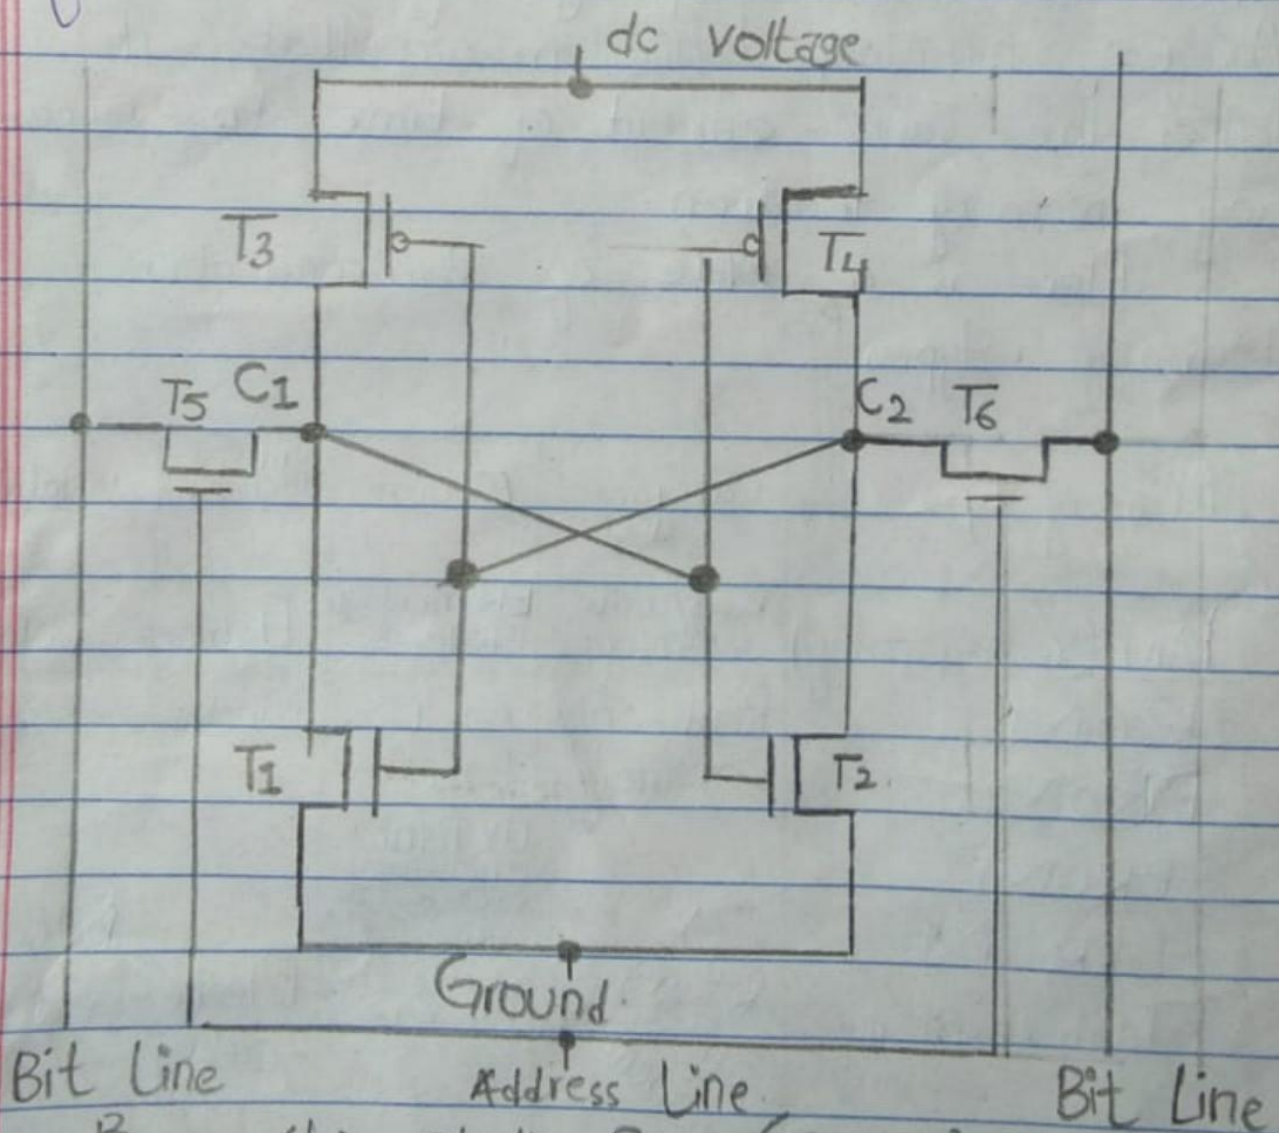 dc voltage
T3
T4
T5 C1
C2 T6
T1
T2.
Ground.
Bit Line
Address Line
Bit Line